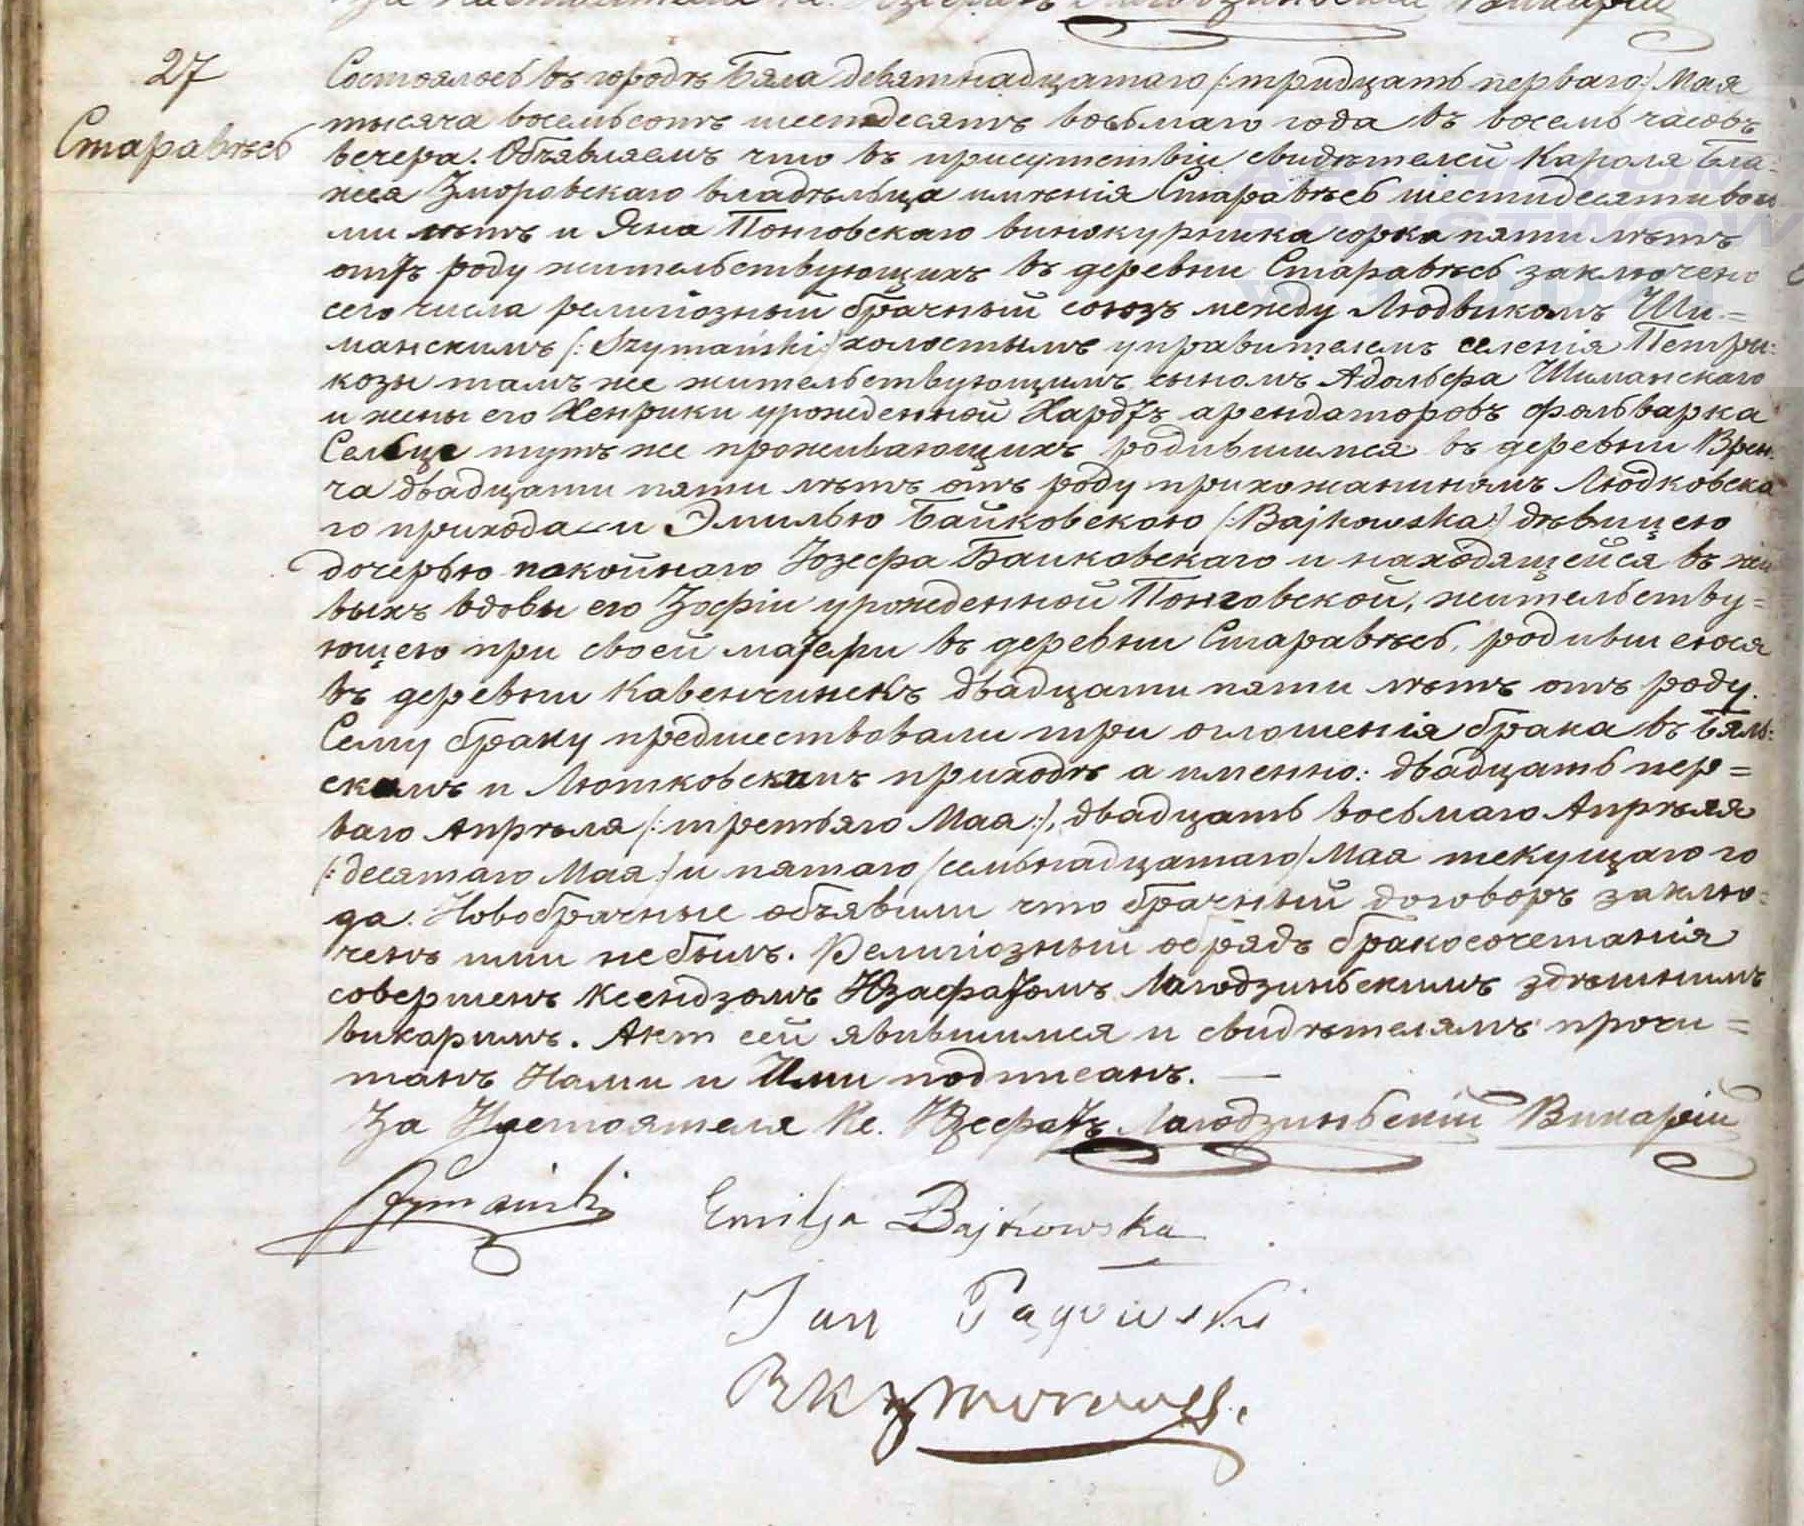 27
Старавѣсь
Состоялось въ городѣ Бяла девятнадцатаго /:тридцать перваго:/ Мая
тысяча восемьсотъ шестьдесятъ восьмаго года въ восемь часовъ
вечера. Объявляемъ что въ присутствіи свидѣтелей Кароля Бла-
жея Зморовскаго владѣльца имѣнія Старавѣсь шестидесяти вось
ми лѣтъ и Яна Понговскаго винокурника сорка пяти лѣтъ
отъ роду жительствующихъ въ деревни Старавѣсь заключено
сего числа религіозный брачный союзъ между Людвикомъ Ши-=
манскимъ /:Szymański:/ холостымъ управителемъ селенія Петри:
козы тамъ же жительствующимъ, сыномъ Адольфа Шиманскаго
и жены его Хенрики урожденной Хардтъ арендаторовъ фольварка
Сельце тутъ же проживающихъ родившимся въ деревни Врен:
ча двадцати пяти лѣтъ отъ роду прихожаниномъ Людковска
го прихода – и Эмилью Байковскою /:Bajkowska:/ дѣвицею
дочерью покойнаго Іозефа Баиковскаго и находящейся въ жи
выхъ вдовы его Зофіи урожденной Понговской, жительству=
ющею при своей матери въ деревни Старавѣсь, родившеюся
въ деревни Кавенчинекъ двадцати пяти лѣтъ отъ роду.
Сему браку предшествовали три оглошенія брака въ Бяль:
скомъ и Лютковскимъ приходѣ а именно: двадцать пер=
ваго Апрѣля /:третьяго Мая:/, двадцать восьмаго Апрѣля
/:десятаго Мая:/ и пятаго /семьнадцатаго/ Мая текущаго го
да. Новобрачные объявили что брачный договоръ заклю=
ченъ ими небылъ. Религіозный обрядъ бракосочетанія
совершенъ Ксендзомъ Юзафатомъ Лагодзиньскимъ здѣшнимъ
викаримъ. Акт сей явившимся и свидѣтелямъ прочи=
танъ Нами и Ими подписанъ. —
За Настоятеля Кс. Юзефатъ Лагодзиньскій Викарій
Szymański Emilja Bajkowska
Jan Pągowski